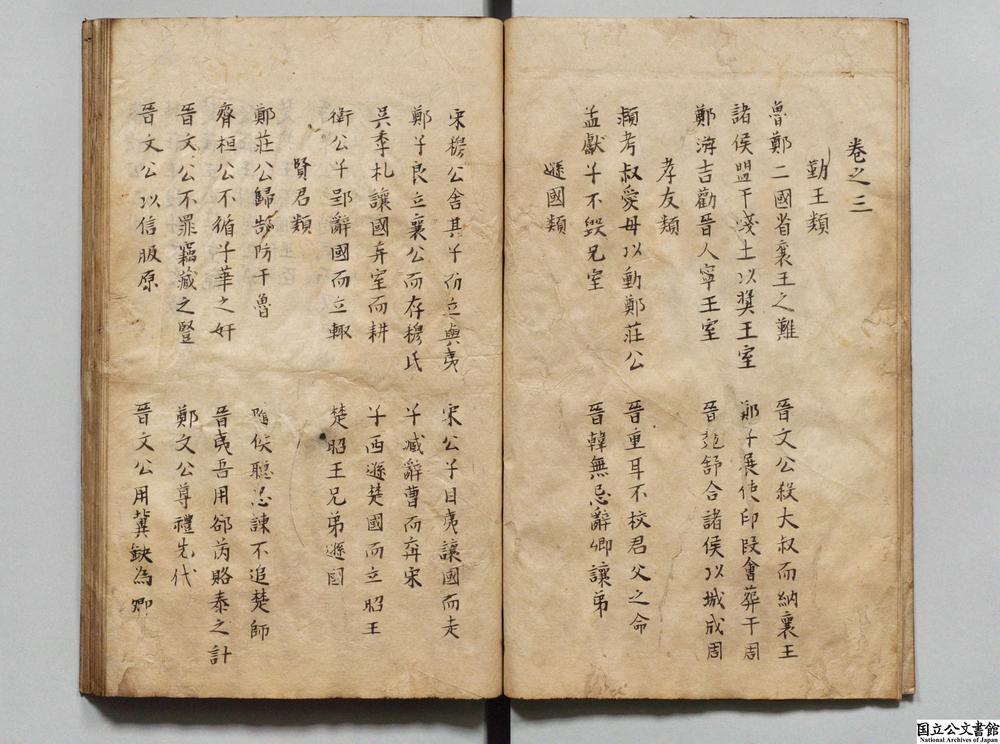 卷之三
勤王類
魯鄭二國省襄王之難　晉文公殺大叔而納襄王
諸侯盟于踐土以獎王室　鄭子展使印段會葬于周
鄭游吉勸晉人寧王室　晉魏舒合諸侯以城成周
孝友類
潁考叔愛母以動鄭莊公　晉重耳不校君父之命
孟獻子不毀兄室　晉韓無忌辭卿讓弟
遜國類
宋穆公舍其子而立與夷　宋公子目夷讓國而走
鄭子良立襄公而存穆氏　子臧辭曹而奔宋
吳季札讓國弃室而耕　子西遜楚國而立昭王
衛公子郢辭國而立輒　楚昭王兄弟遜國
賢君類
鄭莊公歸郜防于魯　隨侯聽忌諫不追楚師
齊桓公不循子華之奸　晉夷吾用郤芮賂泰之計
晉文公不罪竊藏之豎　鄭文公尊禮先代
晉文公以信服原　晉文公用冀缺為卿
国立公文書館
National Archives of Japan